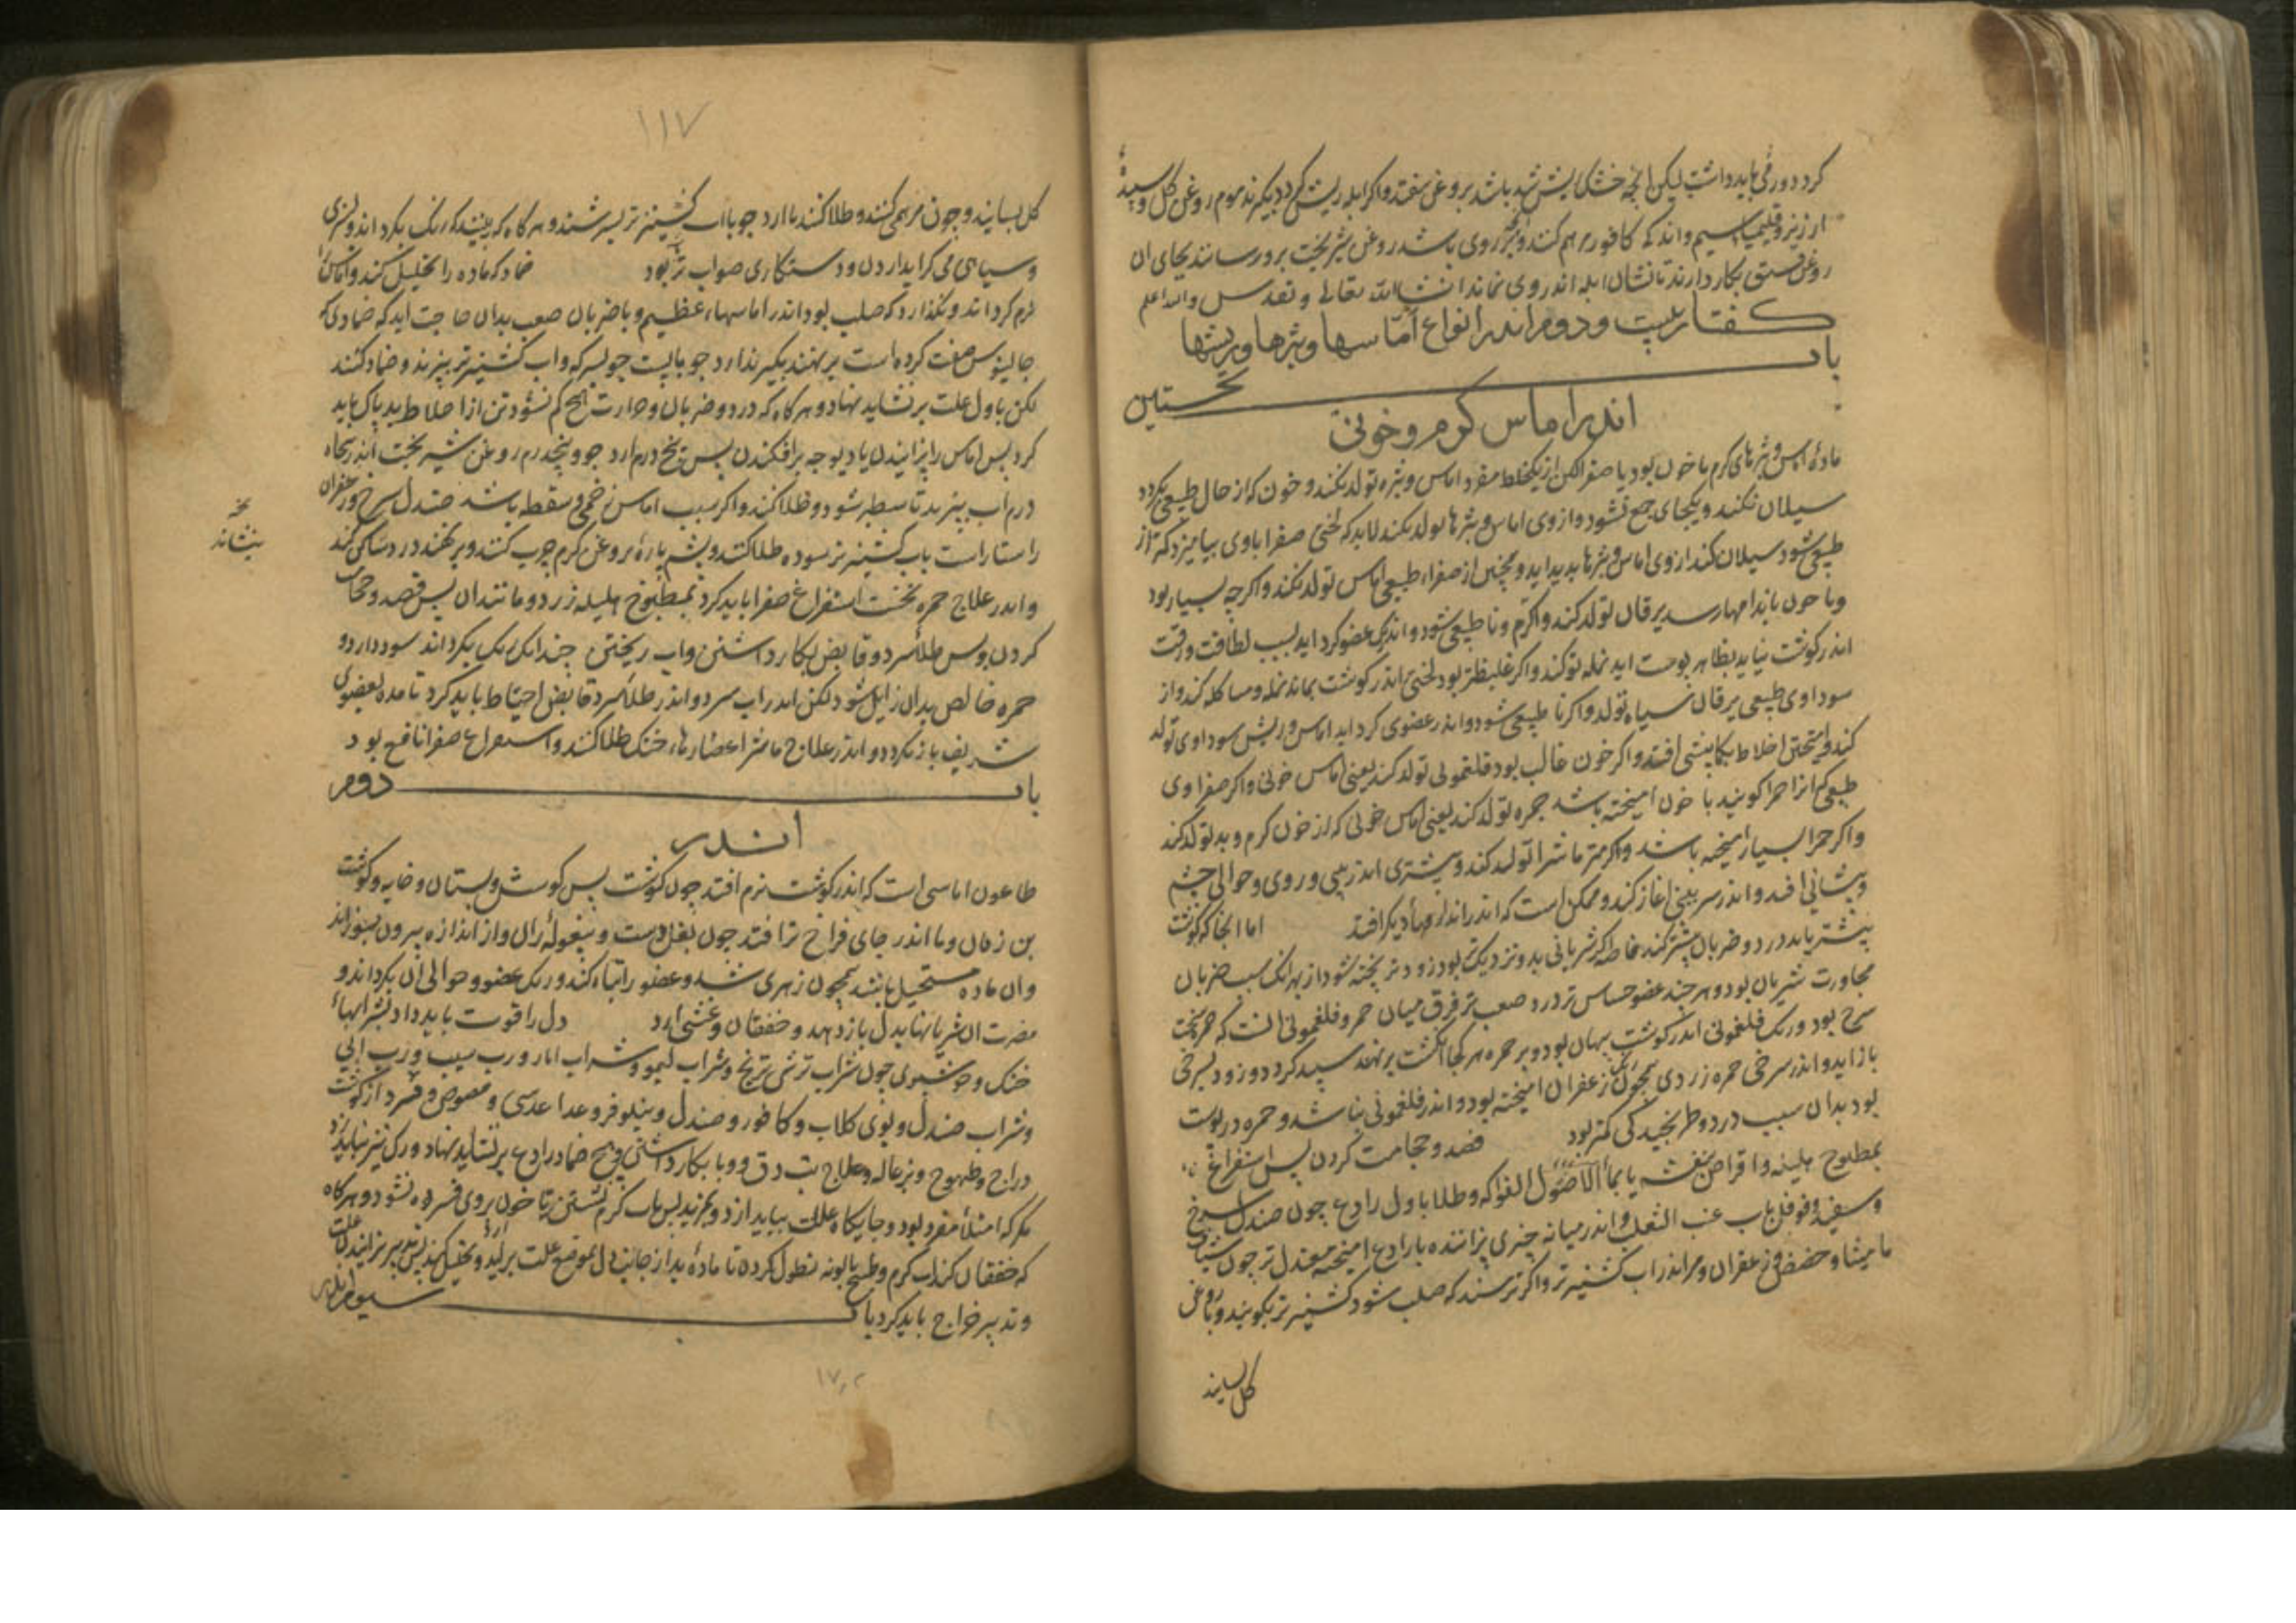 کردد دور می باید داشت لیکن انچه خشک ریش شده باشد بروغن بیفتد و اکر ابله ریش کردد بکیرند موم روغن کل و سپیدهٔ
ارزیز و قلیمیاء سیم و اندکی کافور مرهم کنند و اکر بر روی باشد روغن شیر پخت برورسانند بجای ان
روغن فستق بکار دارند تا نشان ابله اندر روی نماند انشاالله تعالی و تقدس والله اعلم
کفتار بیست و دوم اندر انواع اماسها و بثرها و ریشها
باب نخستین
اندر اماس کرم و خونی
مادهٔ اماس و بثرهای کرم یا خون بود یا صفرا لکن از یکخلط مفرد اماس و بثره تولد نکند و خون که از حال طبیعی نکردد
سیلان نکند و بیکجای جمع نشود و از وی اماس و بثرها تولد نکند لابد که لختی صفرا با وی بیامیزد که از
طبیعی شود سیلان کند از وی اماس و بثرها پدید اید و همچنین از صفراء طبیعی اماس تولد نکند و اکرچه بسیار بود
و با خون باندامها رسد یرقان تولد کند و اکر کرم و نا طبیعی شود و اندر یک عضو کرد اید بسبب لطافت و رقت
اندر کوشت نیاید بظاهر پوست اید نمله تولد کند و اکر غلیظتر بود لختی اندر کوشت بماند نمله و ساکله کند و از
سوداوی طبیعی یرقان سیاه تولد و اکر نا طبیعی شود و اندر عضوی کرد اید اماس و ریش سوداوی تولد
کند و امیختن اخلاط بکمابیشی افتد و اکر خون غالب بود فلغمونی تولد کند یعنی اماس خونی و اکر صفراوی
طبیعی که انرا حمرا کویند با خون امیخته باشد حمره تولد کند یعنی اماس خونی که از خون کرم و بد تولد کند
و اکر حمرا بسیار امیخته باشد و اکر کمتر ماشرا تولد کند و بیشتری اندر بینی و روی و حوالی چشم
و پیشانی افتد و اندر سر بینی اغاز کند و ممکن است که اندر اندامهاء دیکر افتد اما انجا که کوشت
بیشتر باید درد و ضربان بیشتر کند خاصه اکر شریانی بدو نزدیکتر بود زودتر پخته شود از بهر انک سبب ضربان
مجاورت شریان بود و هر چند عضو حساس تر درد صعب تر فرق میان حمره و فلغمونی انست که حمره سخت
سرخ بود و رنک فلغمونی اندر کوشت پنهان بود و بر حمره هر کجا انکشت برنهند سپید کردد و زود بسرخی
باز اید و اندر سرخی حمره زردی همچون رنک زعفران امیخته بود و اندر فلغمونی نباشد و حمره در پوست
بود بدان سبب درد و طرنجیدکی کمتر بود فصد و حجامت کردن پس استفراغ
بمطبوخ هلیله و اقراص بنفشه یا بماء الاصول الفواکه و طلا باول رادع چون صندل سرخ
و سفید و فوفل باب عنب الثعلب و اندر میانه چیزی پزاننده با رادع امیخته معتدل تر چون شیاف
مامیثا و حضض و زعفران و مر اندر اب کشنیز تر و اکر ترسند که صلب شود کشنیز تر بکوبند و با روغن
کل بسایند
۱۱۷
کل بسایند و چون مرهمی کنند و طلا کنند با ارد جو با اب کشنیز تر بسرشند و هرکاه که بینند که رنک بکرداند و سبزی
و سیاهی می کراید ازدن و دستکاری صواب تر بود ضماد که ماده را تحلیل کند و اماس را
نرم کرداند و نکذارد که صلب بود اندر اماسهاء عظیم و با ضربان صعب بدان حاجت اید که ضمادی که
جالینوس صفت کرده است برنهند بکیرند ارد جو با پست جو بسرکه و اب کشنیز تر بپزند و ضماد کنند
لکن باول علت برنشاید نهاد و هرکاه که درد و ضربان و حرارت هیچ کم نشود تن از اخلاط بد پاک باید
کرد پس اماس را پزانیدن یا دیوچه برافکندن پس پنج درم ارد جو و پنجدرم روغن شیر پخت اندر پنجاه
درم اب بپزند تا سطبر شود و طلا کنند و اکر سبب اماس زخمی و سقطه باشد صندل سرخ و زعفران
راستاراست باب کشنیز تر سوده طلا کنند و پشم پارهٔ بروغن کرم چرب کنند و برنهند درد ساکن کند
و اندر علاج حمره نخست استفراغ صفرا باید کرد بمطبوخ هلیله زرد و مانند ان پس فصد و حجامت
کردن پس طلاء سرد و قابض بکار داشتن و اب ریختن چندانک رنک بکرداند سود دارد و
حمره خالص بدان زایل شود لکن اندر اب سرد و اندر طلاء سرد قابض احتیاط باید کرد تا ماده بعضوی
شریف باز نکردد و اندر علاج ماشرا عصارهاء خنک طلا کنند و استفراغ صفرا نافع بود
نخه
بنشاند
باب دوم
اندر
طاعون اماسی است که اندر کوشت نرم افتد چون کوشت پس کوش و پستان و خایه و کوشت
بن زفان و یا اندر جای فراخ تر افتد چون بغل دست و پیغولهٔ ران و از اندازه بیرون بسوزاند
و ان ماده مستحیل باشد همچون زهری شده و عضو را تباه کند و رنک عضو و حوالی ان بکرداند و
مضرت ان شریانها بدل باز دهد و خفقان و غشی ارد دل را قوت باید داد بشرابهاء
خنک و خوشبوی چون شراب ترشی ترنج و شراب لیمو و شراب انار و رب سیب و رب ابی
و شراب صندل و بوی کلاب و کافور و صندل و نیلوفر و غذا عدسی و مصوص و قسرد از کوشت
دراج و طیهوج و بزغاله و علاج تب دق و وبا بکار داشتن و هیچ ضماد رادع برنشاید نهاد و رک نیز نباید زد
مکر که امتلاء مفرد بود و جایکاه علت بیاید ازد و بمزند پس باب کرم شستن تا خون بروی فسرده نشود و هرکاه
که خفقان کند اب کرم و طبیخ بابونه نطول کردن تا ماده بد از جانب دل بموضع علت براید و تحلیل کند پس تدبیر پزانیدن
و تدبیر خراج باید کرد باب سیوم